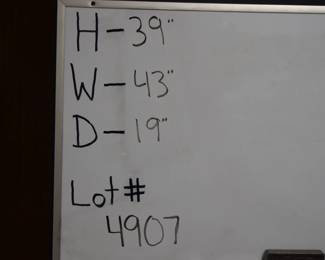 H-39"
W-43"
D-19"
Lot#
4907